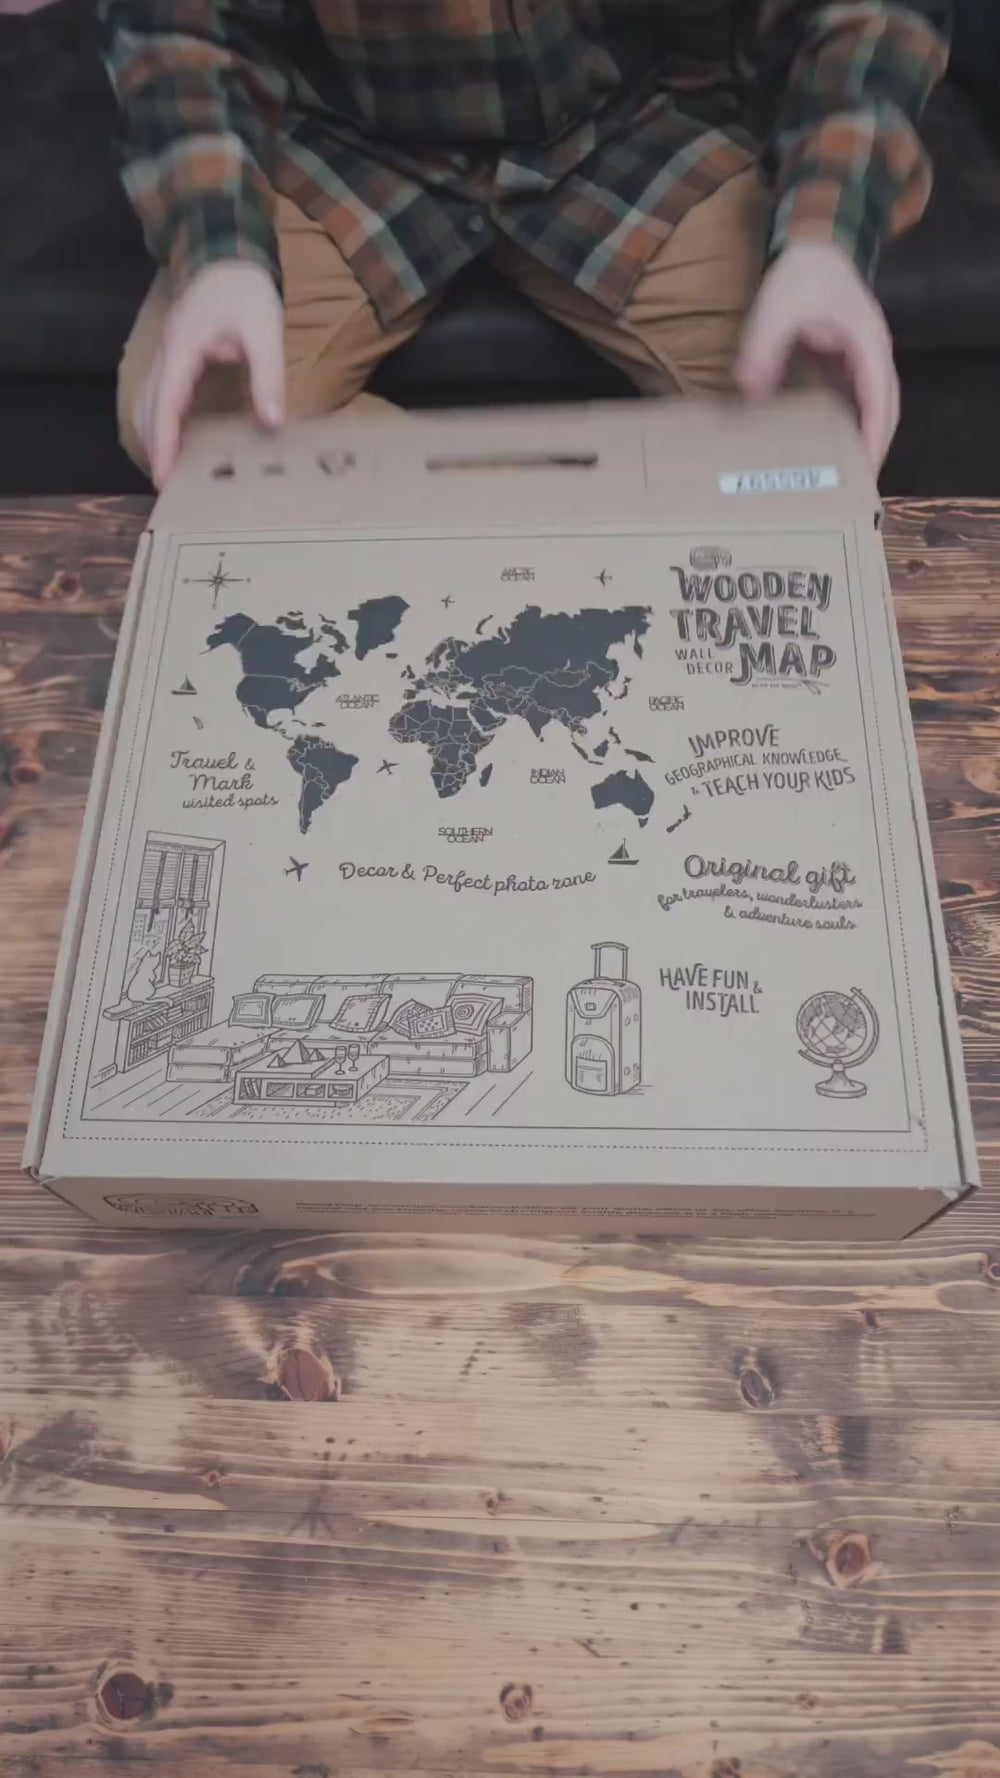 ARCTIC
OCEAN
WOODEN
TRAVEL
WALL
DECOR
MAP
ATLANTIC
OCEAN
PACIFIC
OCEAN
IMPROVE
GEOGRAPHICAL KNOWLEDGE
& TEACH YOUR KIDS
Travel &
Mark
visited spots
INDIAN
OCEAN
SOUTHERN
OCEAN
Decor & Perfect photo zone
Original gift
for travelers, wanderlusters
& adventure souls
HAVE FUN &
INSTALL